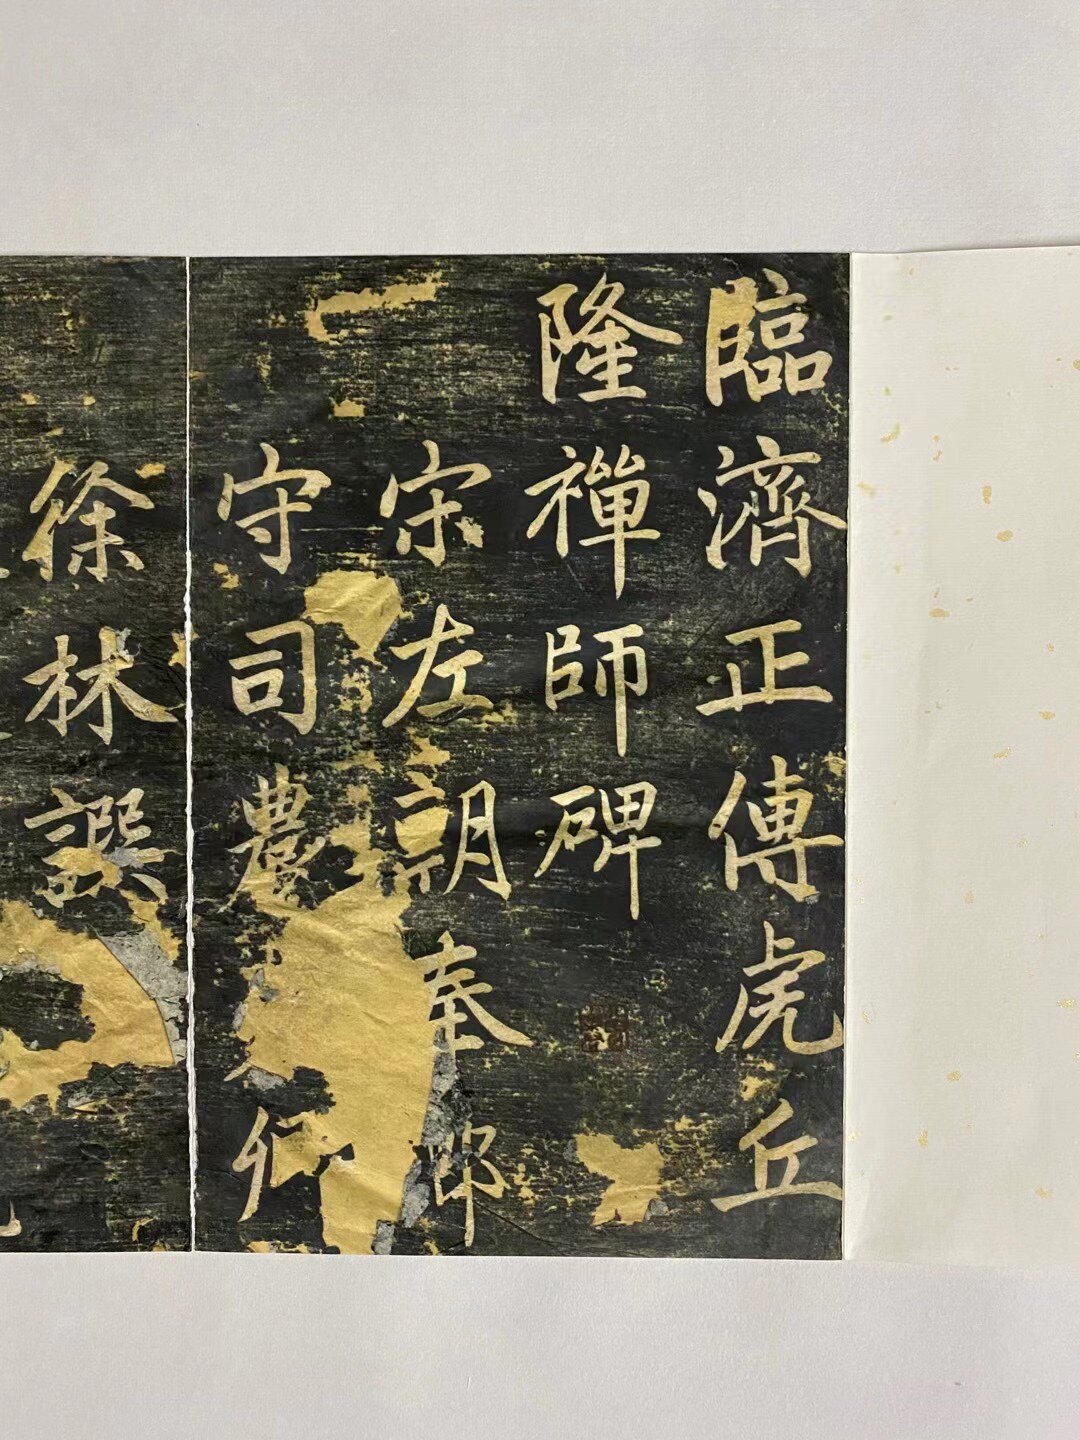 臨濟正傳虎丘
隆禪師碑
宋左朝奉郎
守司農
徐林譔